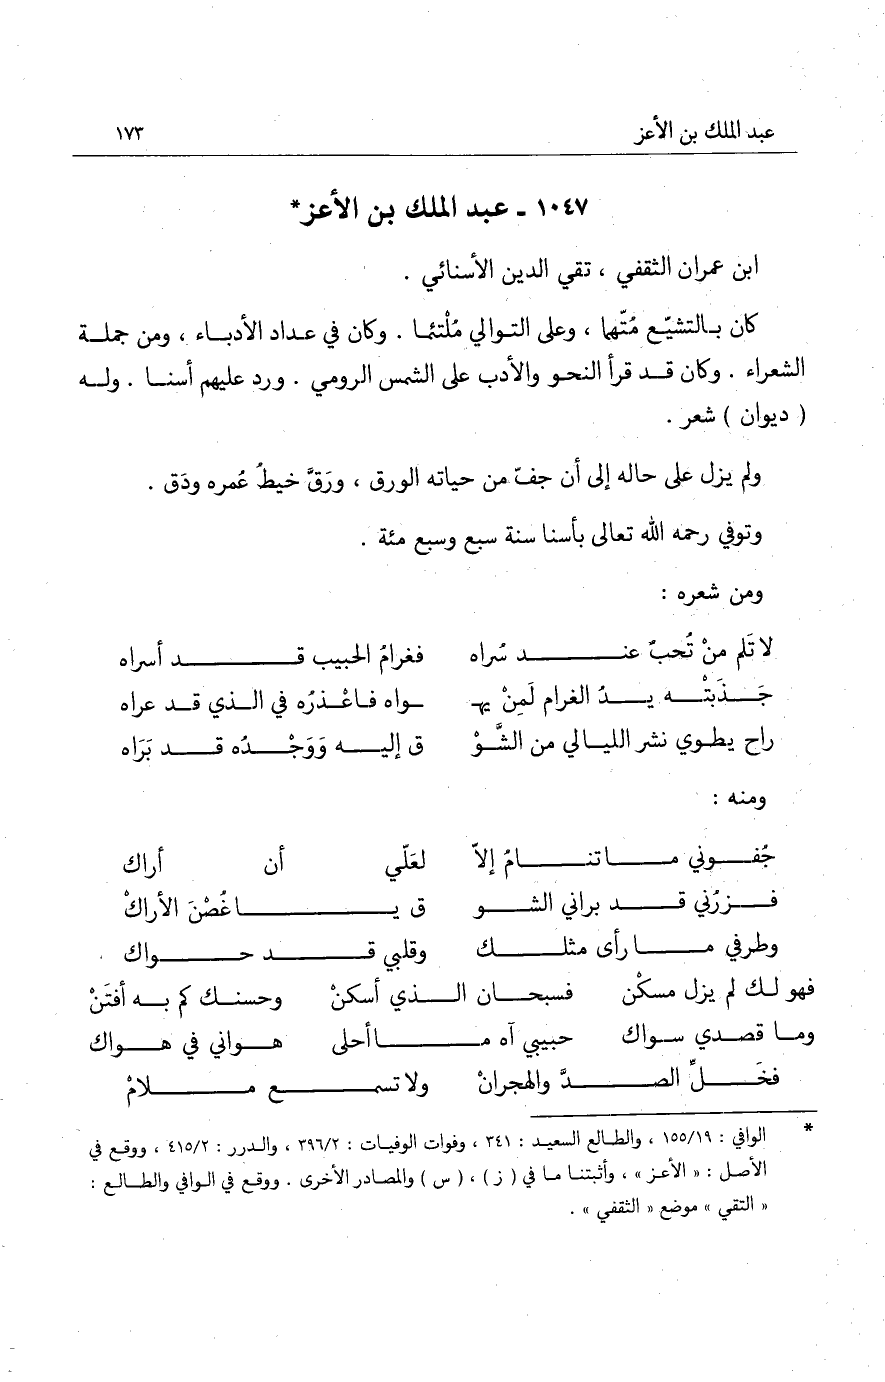 عبد الملك بن الأعز ١٧٣
١٠٤٧ ـ عبد الملك بن الأعز*
ابن عمران الثقفي ، تقي الدين الأسنائي .
كان بالتشيّع مُتّهما ، وعلى التوالي مُلْتئما . وكان في عداد الأدباء ، ومن جملة
الشعراء . وكان قد قرأ النحو والأدب على الشمس الرومي . ورد عليهم أسنا . وله
( ديوان ) شعر .
ولم يزل على حاله إلى أن جفّ من حياته الورق ، ورَقَّ خيطُ عُمره ودَق .
وتوفي رحمه الله تعالى بأسنا سنة سبع وسبع مئة .
ومن شعره :
لا تَلم منْ تُحبّ عند سُراه فغرامُ الحبيب قد أسراه
جَذَبتْه يدُ الغرام لَمِنْ يهـ ـواه فاعْذرُه في الذي قد عراه
راح يطوي نشر الليالي من الشَّوْ ق إليه وَوَجْدُه قد بَرَاه
ومنه :
جُفوني ما تنامُ إلاّ لعَلّي أن أراك
فزرْني قد براني الشو ق يا غُصْنَ الأراكْ
وطرفي ما رأى مثلك وقلبي قد حواك .
فهو لك لم يزل مسكنْ فسبحان الذي أسكنْ وحسنك كم به أفتَنْ
وما قصدي سواك حبيبي آه ما أحلى هواني في هواك
فخَلِّ الصدَّ والهجرانْ ولا تسمع ملامْ
* الوافي : ١٥٥/١٩ ، والطالع السعيد : ٣٤١ ، وفوات الوفيات : ٣٩٦/٢ ، والدرر : ٤١٥/٢ ، ووقع في
الأصل : « الأعز » ، وأثبتنا ما في ( ز ) ، ( س ) والمصادر الأخرى . ووقع في الوافي والطالع :
« التقي » موضع « الثقفي » .